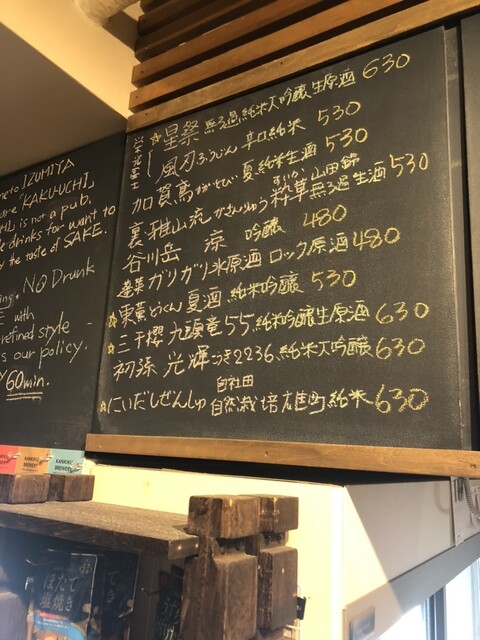 栄光冨士
☆星祭 無ろ過純米大吟醸生原酒 630
風刃ふうじん 辛口純米 530
加賀鳶かがとび 夏純米生酒 530
裏・雅山流がさんりゅう 粋華すいか 山田錦 無ろ過生酒 530
谷川岳 涼 吟醸 480
蓬莱 ガリガリ氷原酒 ロック原酒 480
☆東薫とうくん 夏酒 純米吟醸 530
☆三千櫻 九頭竜55 純米吟醸生原酒 630
初孫 光輝こうき2236 純米大吟醸 630
☆にいだしぜんしゅ 自社田 自然栽培雄町純米 630
to IZUMIYA
"KAKU-UCHI,
is not a pub.
drinks for want to
the taste of SAKE.
No Drunk
with
refined style
our policy.
60min.
KANKIKU
BREWERY
KANKIKU
BREWERY
ほたて
塩焼き